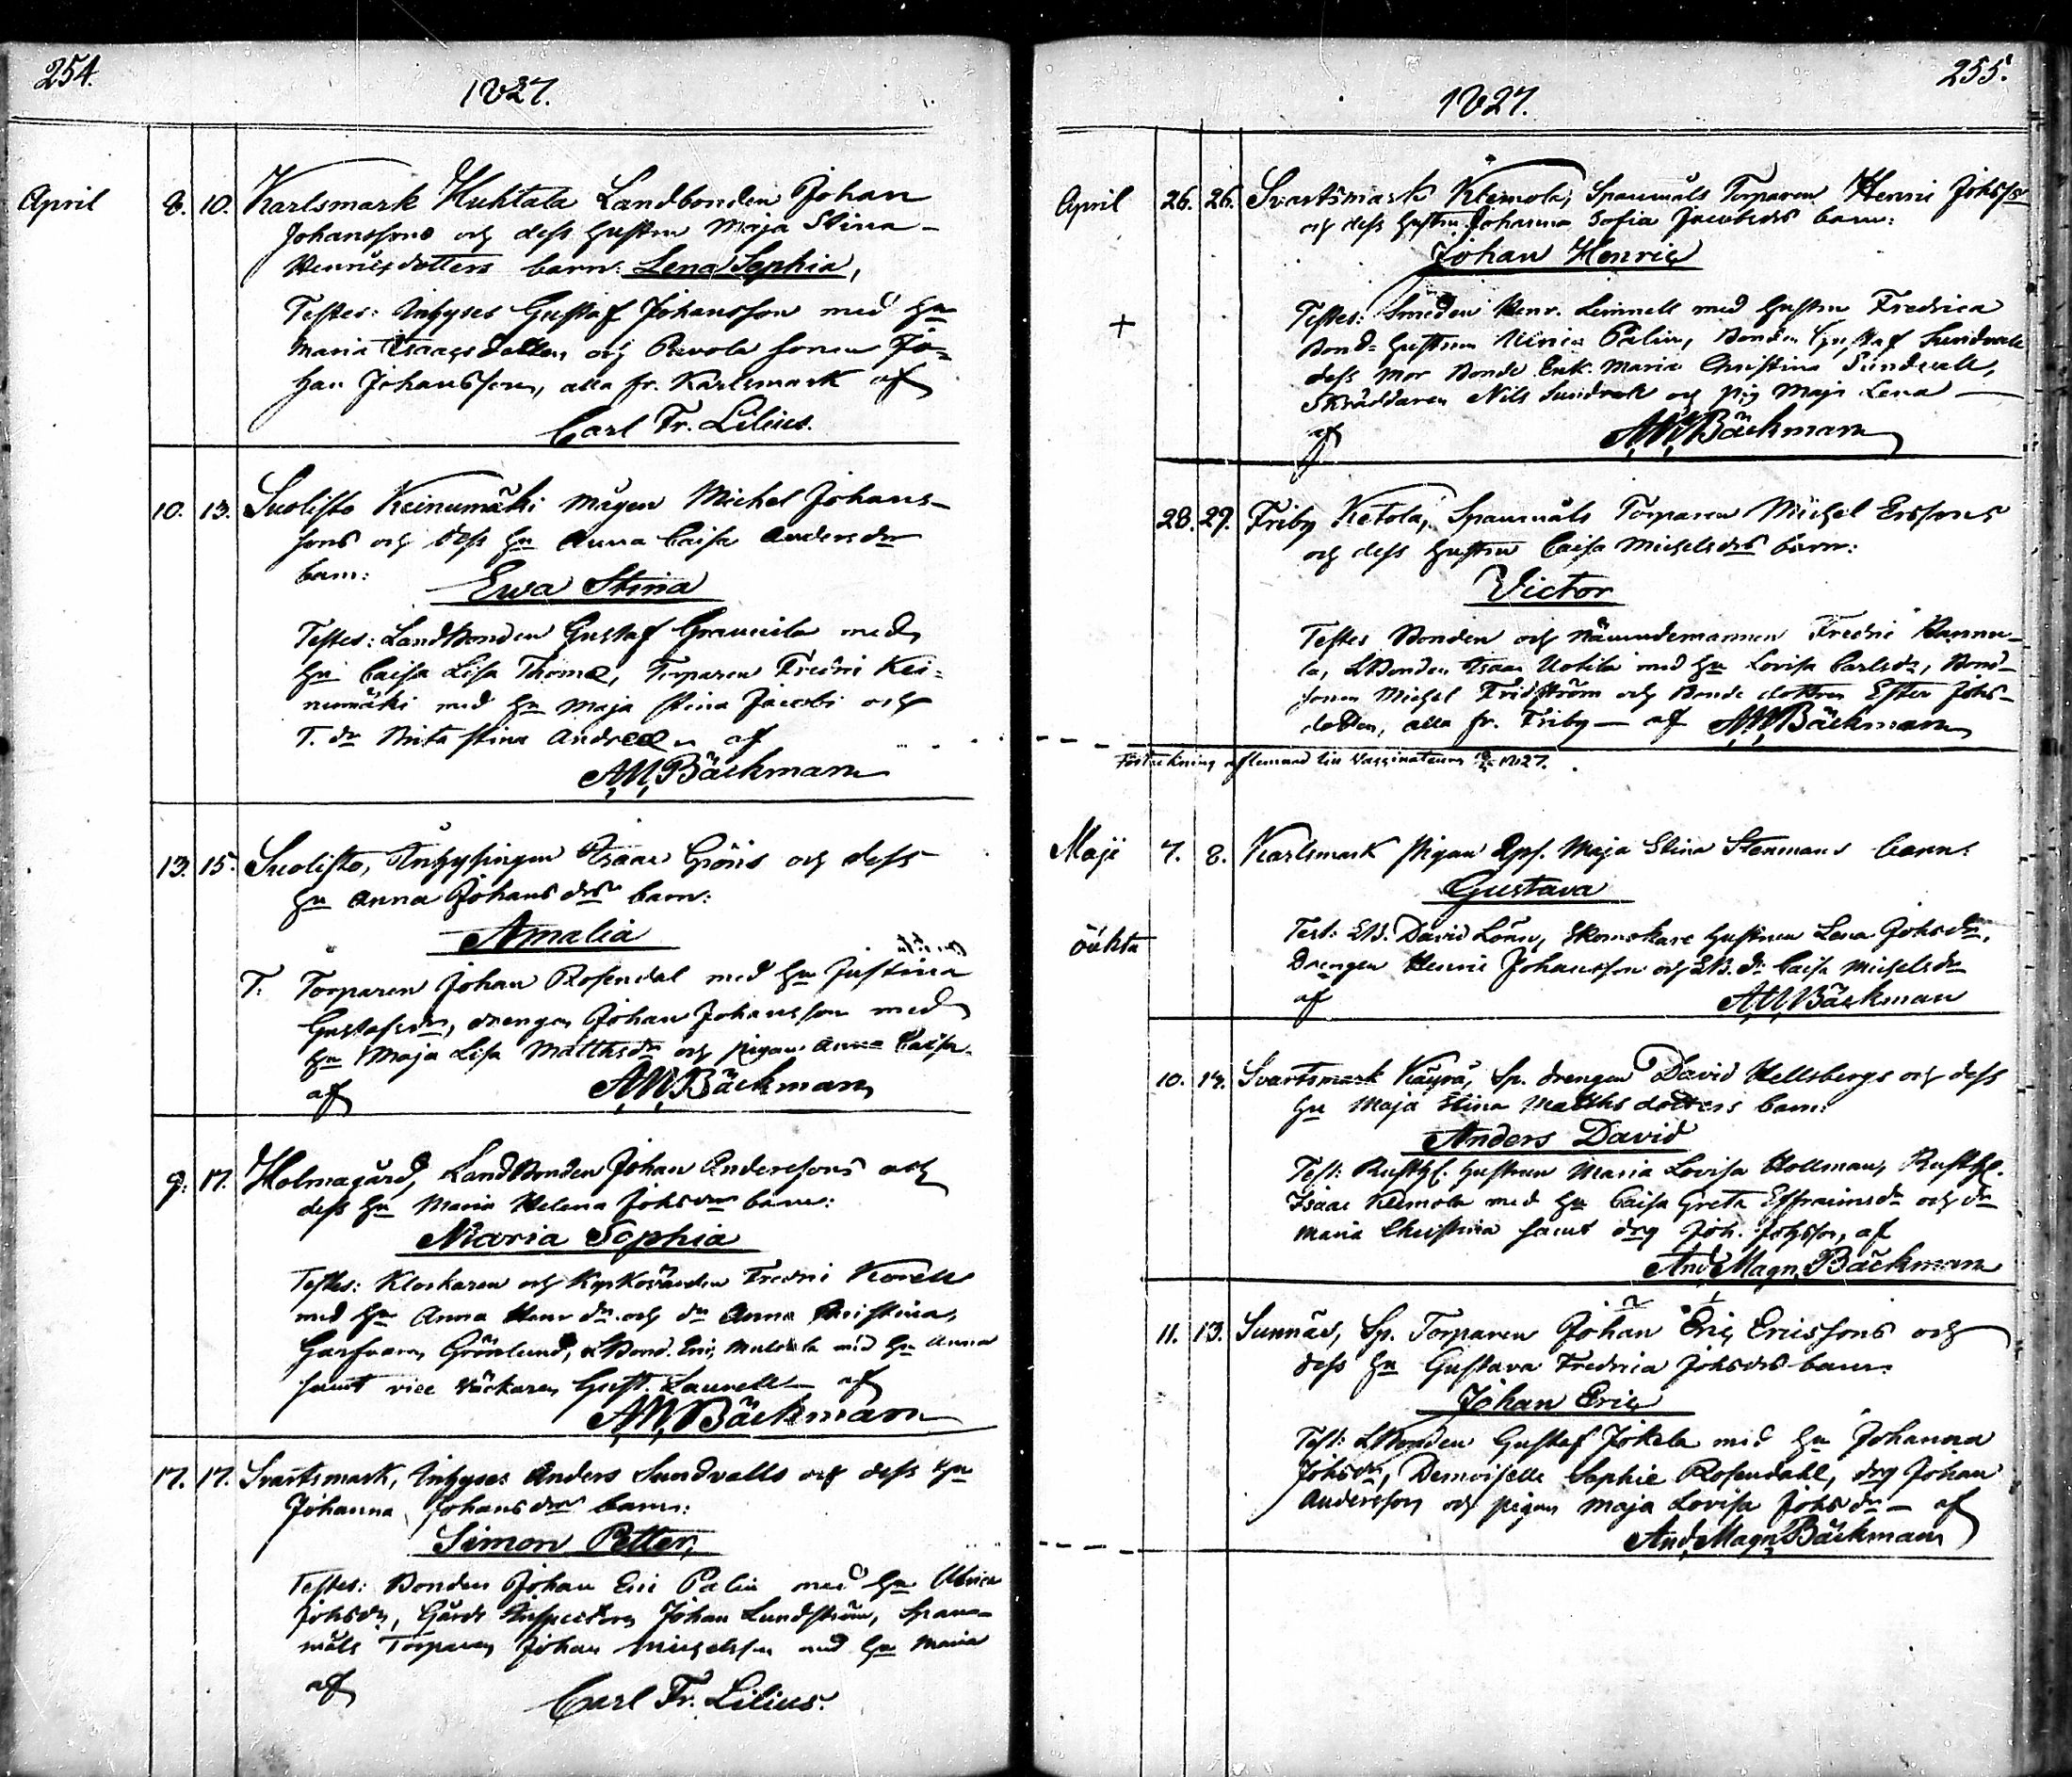 254.
1827.
April 8. 10. Karlsmark Huhtala Landbonden Johan
Johanssons och dess hustru Maja Stina
Henricsdotters barn: Lena Sophia,
Testes: Inhyses Gustaf Johansson med hu
Maria Isaacsdotter och Revola sonen Jo=
han Johansson, alla fr. Karlsmark af
Carl Fr. Lilius.
10. 13. Suolisto Keinumäki mågen Michel Johans-
sons och dess hu Anna Caisa Andersdr
barn:
Ewa Stina
Testes: LandBonden Gustaf Grannila med
hu Caisa Lisa Thomæ, Torparen Fredric Kei=
numäki med hu Maja Stina Jacobi och
T. dr Brita Stina Andreæ af
A,M,Bäckman
13. 15. Suolisto, Inhysingen Isaac Gröns och dess
hu Anna Johansdrs barn:
Amalia
T. Torparen Johan Rosendal med hu Justina
Gustafsdr, drengen Johan Johansson med
hu Maja Lisa Matthsdr och pigan Anna Caisa
af A,M,Bäckman
9. 17. Holmagård, LandBonden Johan Anderssons och
dess hu Maria Helena Johsdrs barn:
Maria Sophia
Testes: Klockaren och Kyrkovärden Fredric Korell
med hu Anna Henrdr och dr Anna Christina,
Garfvaren Grönlund, LBond. Eric med hu Anna
samt vice väckaren Gust. Laurell af
A,M,Bäckman
17. 17. Svartsmark, Inhyses Anders Sundvalls och dess hu
Johanna Johansdrs barn:
Simon Petter,
Testes: Bonden Johan Eric Palin med hu Ulrica
Johsdr, Gårds Inspectoren Johan Lundström, Spann-
måls Torparen Johan Michelsson med hu Maria
af Carl Fr. Lilius.
255.
1827.
April 26. 26. Svartsmark Klemola, Spanmåls Torparen Henric Johss
och dess hustru Johanna Sofia Jacobsdrs barn:
Johan Henric
Testes: Smeden Henr. Limnell med hustru Fredrica
+
Bond- hustrun Ulrica Palin, Bonden Gustaf Sundvall
dess mor Bonde Enk. Maria Christina Sundvall,
Skräddaren Nils Sundvall och pig Maja Lena
af A,M,Bäckman
28. 29. Friby Ketola, Spanmåls Torparen Michel Erssons
och dess hustru Caisa Michelsdrs barn:
Victor
Testes Bonden och Nämndemannen Fredric Hannu-
la, LBonden Isaac Uotila med hu Lovisa Carlsdr, Bond-
sonen Michel Fridström och Bonde dottren Ester Johs-
dotter, alla fr. Friby af A,M,Bäckman
Förtekning aflemnad till Vaccinateuren 1827.
Maji 7. 8. Karlsmark Pigan Maja Stina Stenmans barn:
Gustava
oäkta
Test: LB. David Lönn, Skomakare hustrun Lena Johsdr,
Drengen Henric Johansson och LB. dr Caisa Michelsdr
af A,M,Bäckman
10. 12. Svartsmark Käyrä, Sp. drengen David Hellsbergs och dess
hu Maja Stina Matthsdotters barn:
Anders David
Test: Rusth. hustrun Maria Lovisa Hollman, Rusth.
Isaac Klemola med hu Caisa Greta Effraimsdr och dr
Maria Christina samt drg Joh. Johsson, af
And, Magn, Bäckman
11. 13. Sunnäs, Sp. Torparen Johan Eric Ericssons och
dess hu Gustava Fredrica Johsdrs barn:
Johan Eric
Test: LBonden Gustaf Jokela med hu Johanna
Johsdr, Demoiselle Sophie Rosendahl, drg Johan
Andersson och pigan Maja Lovisa Johsdr af
And, Magn, Bäckman